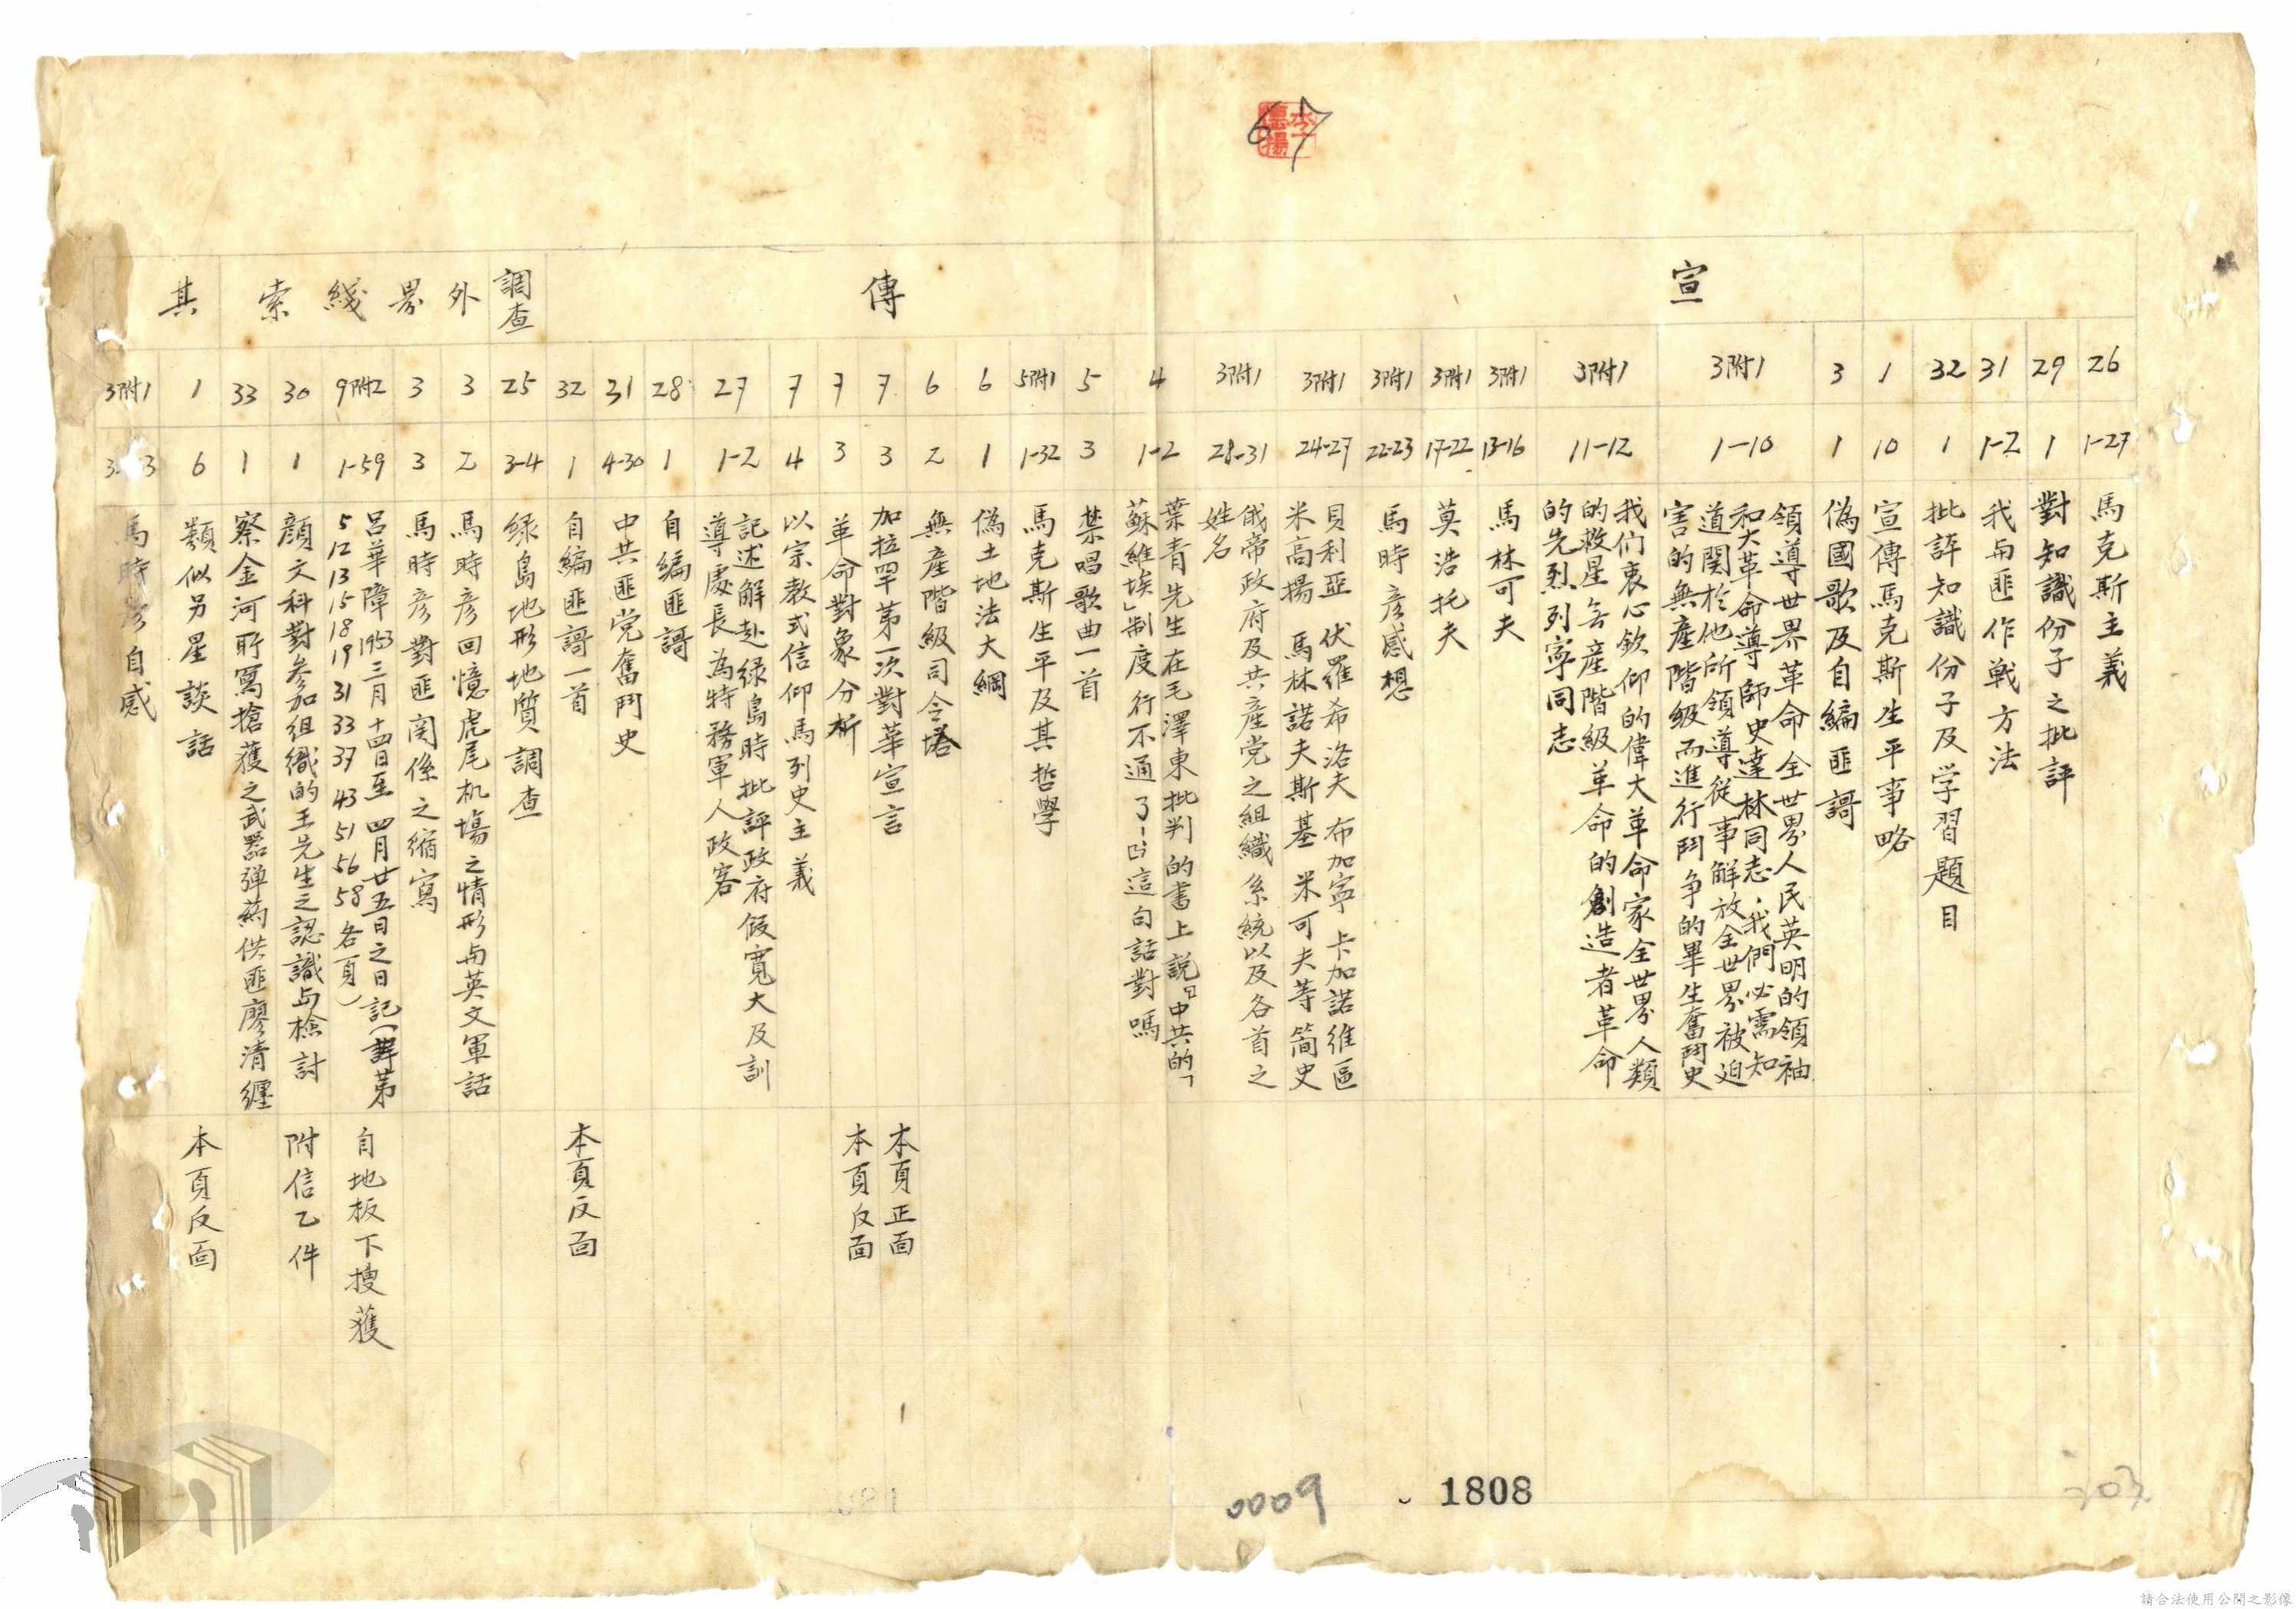 李
德揚
67
宣
傳
調查
外界綫索
其
26
1-27
馬克斯主義
29
1
對知識份子之批評
31
1-2
我與匪作戰方法
32
1
批評知識份子及学習題目
1
10
宣傳馬克斯生平事略
3
1
偽國歌及自編匪謌
3附1
1-10
領導世界革命全世界人民英明的領袖
和大革命導師史達林同志,我們必需知
道関於他所領導從事解放全世界被迫
害的無產階級而進行鬥争的畢生奮鬥史
3附1
11-12
我们衷心欽仰的偉大革命家全世界人類
的救星無産階級革命的創造者革命
的先烈列寧同志
3附1
13-16
馬林可夫
3附1
17-22
莫浩托夫
3附1
22-23
馬時彦感想
3附1
24-27
貝利亞 伏羅希洛夫 布加寧 卡加諾維區
米高揚 馬林諾夫斯基 米可夫等简史
3附1
28-31
俄帝政府及共產党之組織系統以及各首之
姓名
4
1-2
葉青先生在毛澤東批判的書上説『中共的「
蘇維埃」制度行不通了』這句話對嗎
5
3
禁唱歌曲一首
5附1
1-32
馬克斯生平及其哲學
6
1
偽土地法大綱
6
2
無產階級司令塔
7
3
加拉罕第一次對華宣言
本頁正面
7
3
革命對象分析
本頁反面
7
4
以宗教式信仰馬列史主義
27
1-2
記述解赴綠島時批評政府假寬大及訓
導處長為特務軍人政客
28
1
自編匪謌
31
4-30
中共匪党奮鬥史
32
1
自編匪謌一首
本頁反面
25
3-4
綠島地形地質調查
3
2
馬時彦回憶虎尾机場之情形與英文軍話
3
3
馬時彦對匪関係之縮寫
9附2
1-59
呂華璋1953三月十四日至四月廿五日之日記(詳第
5 12 13 15 18 19 31 33 37 43 51 56 58各頁)
自地板下搜獲
30
1
顏文科對參加組織的王先生之認識與檢討
附信乙件
33
1
察金河所寫搶獲之武器弹葯供匪廖清纏
1
6
類似另星談話
本頁反面
3附1
馬時彦自感
0009
1808
203
請合法使用公開之影像